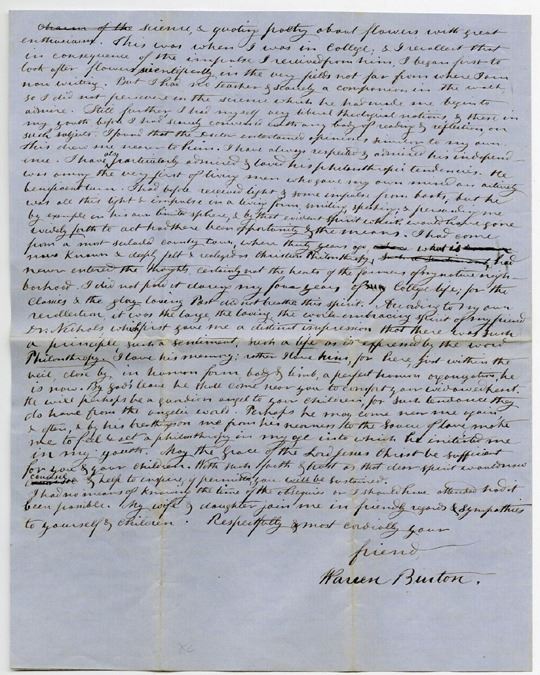 charm of the science, & quoting poetry about flowers with great
enthusiasm. This was when I was in College, & I recollect that
in consequence of the impulse I received from him, I began first to
look after flowers scientifically in the very fields not far from where I am
now writing. But I had no teacher & scarcely a companion in the walk,
so I did not persevere in the science which he had made me begin to
admire. Still further I had myself very liberal theological notions, & these in
my youth before I had summoned courage or any body of reading & reflection on
such subjects. I found that the Doctor entertained opinions similar to my own.
this drew me nearer to him. I have always respected & admired his independ-
ence. I have also particularly admired & loved his philanthropic tendencies. He
was among the very first of living men who gave my own mind an actively
beneficent turn. I had before received light & some impulse from books, but he
was all this light & impulse in a living form, smiling, speaking & persuading me
by example in his own limited sphere, & by that evident spirit which would have gone
widely forth to act had there been opportunity & the means. I had come
from a most secluded country town, where thirty years ago what is
now known & deeply felt & realized as Christian Philanthropy, had
never entered the thoughts, certainly not the hearts of the farmers of my native neigh-
borhood. I did not find it during my four years of College life; for
the Classics & the glory loving Past did not breathe this spirit. According to my own
recollection it was the large, the loving, the world-embracing spirit of my friend
Dr. Nichols which first gave me a distinct impression that there was such
a principle, such a sentiment, such a life as is expressed by the word
Philanthropy. I love his memory; rather I love him, for here, just within the
veil, close by, in human form, body & limb, a perfect human organization, he
is now. By God's leave he shall come near you to comfort your widowed heart.
He will perhaps be a guardian angel to your children, for such tendance they
do have from the angelic world. Perhaps he may come near me again
& often, & by his breathings on me from his nearness to the Source of love make
me to feel & act a philanthropy in my age into which he initiated me
in my youth. May the grace of the Lord Jesus Christ be sufficient
for you & your children. With such faith & trust as that dear spirit would now
counsel & help to inspire, if permitted, you will be sustained.
I had no means of knowing the time of the obsequies or I should have attended had it
been possible. My wife & daughter join me in friendly regards & sympathies
to yourself & children. Respectfully & most cordially your
friend
Warren Burton.